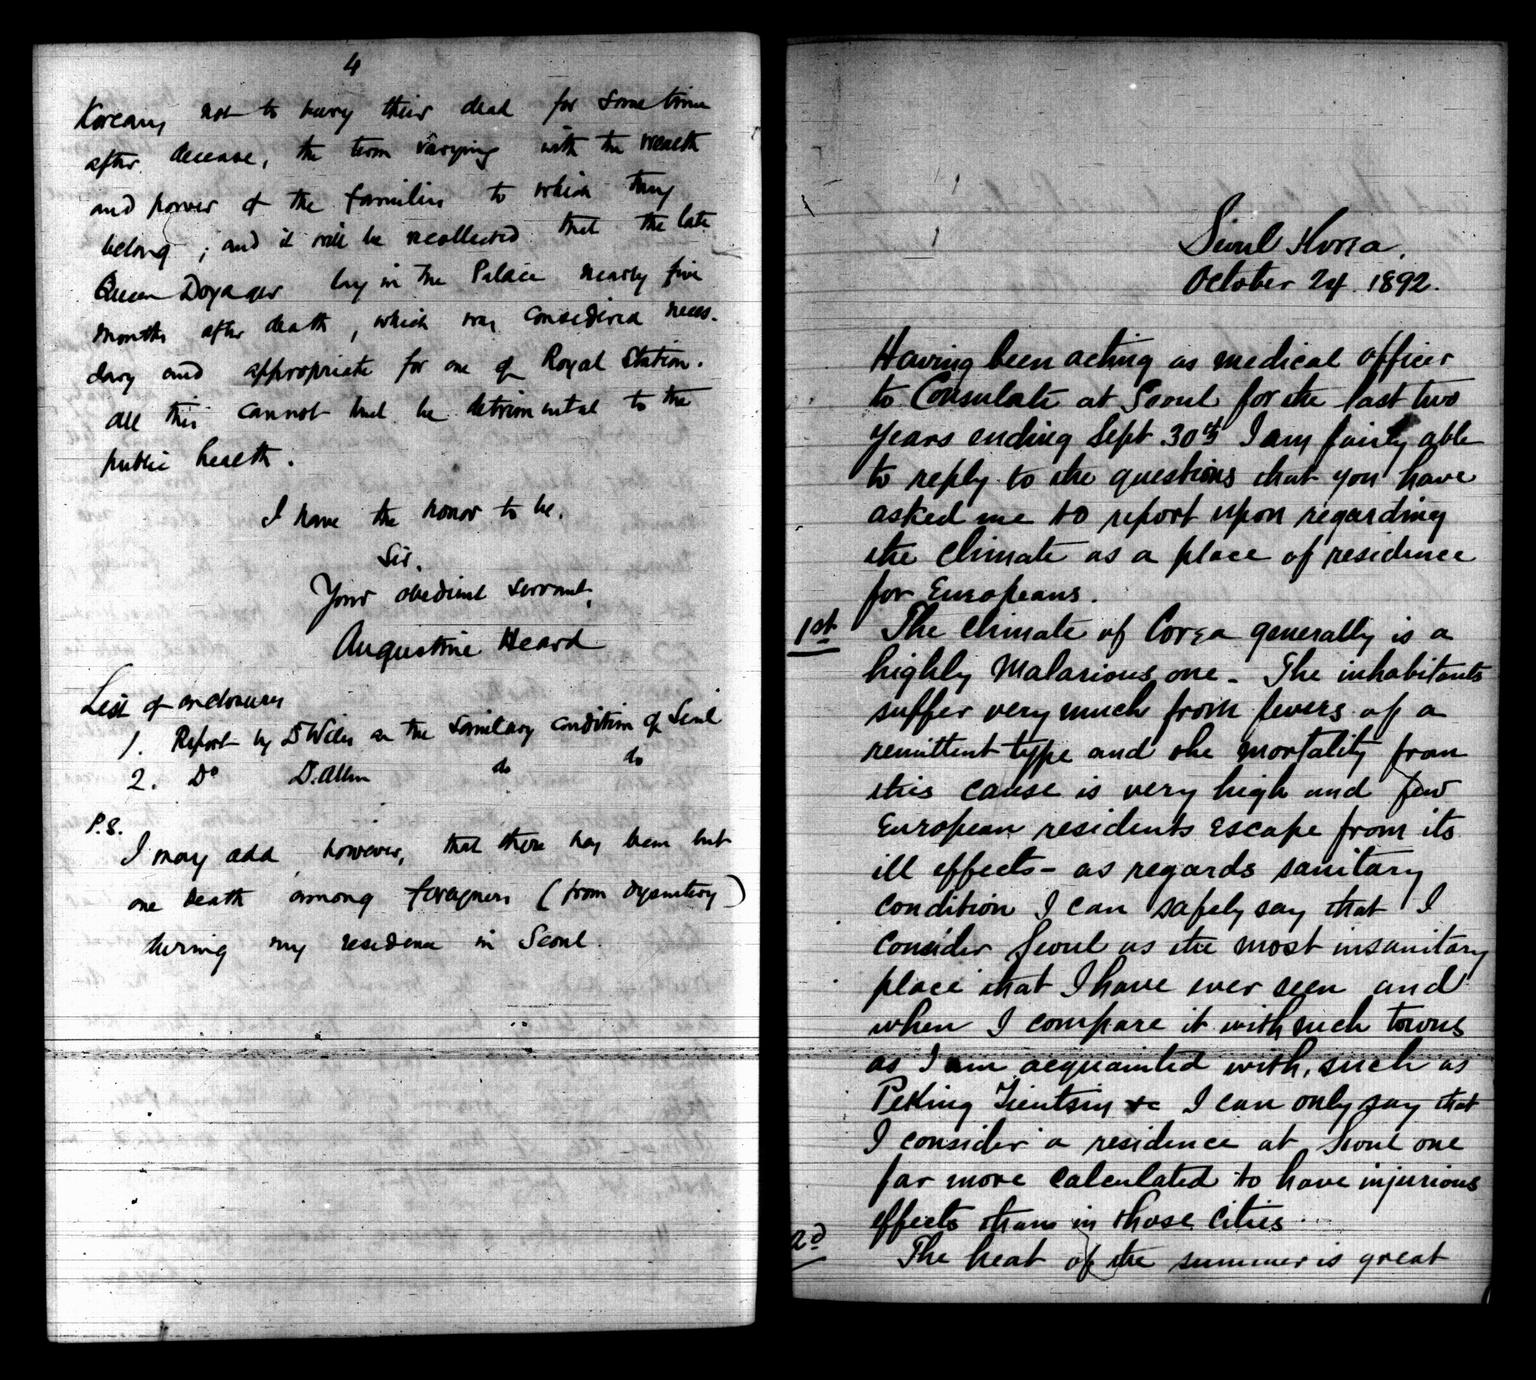 4
Koreans not to bury their dead for some time
after decease, the term varying with the wealth
and power of the families to which they
belong; and it will be recollected that the late
Queen Dowager lay in the Palace nearly five
months after death, which was considered neces-
sary and appropriate for one of Royal Station.
All this cannot but be detrimental to the
public health.
I have the honor to be,
Sir,
Your obedient servant,
Augustine Heard
List of enclosures
1. Report by Dr Wiles on the Sanitary condition of Seoul
2. Do Dr. Allen do do
P.S.
I may add, however, that there has been but
one death among foreigners (from dysentery)
during my residence in Seoul.
Seoul Korea.
October 24. 1892.
Having been acting as medical officer
to Consulate at Seoul for the last two
years ending Sept. 30th I am fairly able
to reply to the questions that you have
asked me to report upon regarding
the climate as a place of residence
for Europeans.
1st The climate of Corea generally is a
highly Malarious one - The inhabitants
suffer very much from fevers of a
remittent type and the mortality from
this cause is very high and few
European residents escape from its
ill effects - as regards sanitary
condition I can safely say that I
consider Seoul as the most insanitary
place that I have ever seen and
when I compare it with such towns
as I am acquainted with, such as
Peking Tientsin &c I can only say that
I consider a residence at Seoul one
far more calculated to have injurious
effects than in those cities
2d The heat of the summer is great